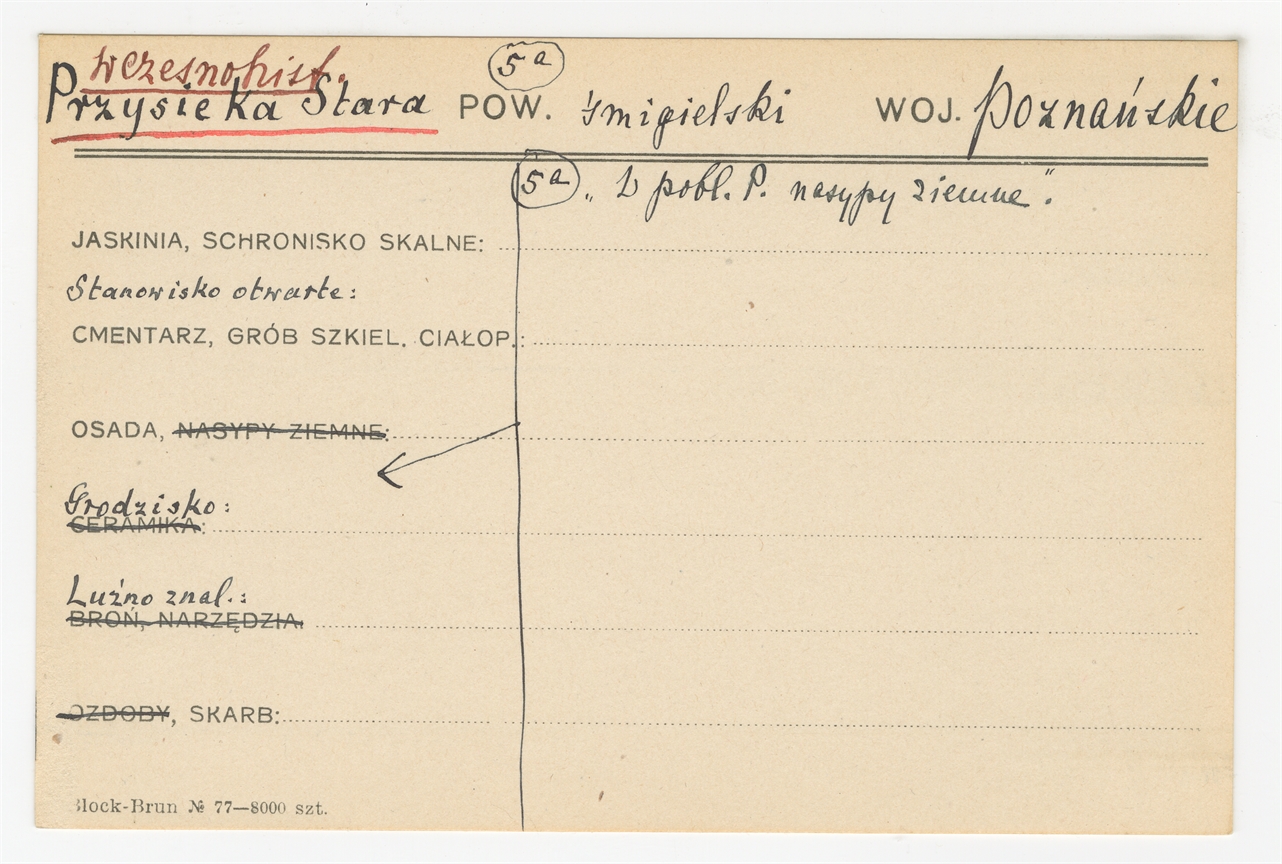 wczesnohist. 5a
Przysieka Stara POW. śmigielski WOJ. Poznańskie
5a „Z pobl. P. nasypy ziemne".
JASKINIA, SCHRONISKO SKALNE:
Stanowisko otwarte:
CMENTARZ, GRÓB SZKIEL. CIAŁOP.:
OSADA, NASYPY ZIEMNE:
Grodzisko:
CERAMIKA:
Luźno znal.:
BROŃ, NARZĘDZIA.
OZDOBY, SKARB:
Block-Brun № 77—8000 szt.